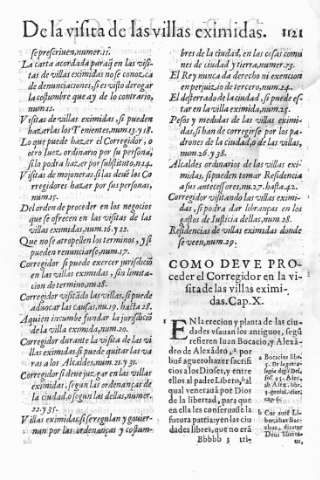 De la visita de las villas eximidas. 1121
se prescriuen, numer. 11.
La carta acordada para q̃ en las visitas
tas de villas eximidas no se conozca
de denunciaciones, si es visto derogar
la costumbre que ay de lo contrario,
num. 12.
Visitas de villas eximidas, si pueden
hazerlas los Tenientes, num. 13. y 18.
Lo que puede hazer el Corregidor, o
otro Iuez, ordinario por su persona,
si lo podra hazer por substituto, n. 14.
Visitas de mojoneras, si las deuẽ los Co
rregidores hazer por sus personas,
num. 15.
Del orden de proceder en los negocios
que se ofrecen en las visitas de las
villas eximidas, num. 16. y 22.
Que no se atropellen los terminos, y si
pueden renunciarse, num. 17.
Corregidor si puede exercer jurisdiciõ
en las villas eximidas, sin limitacion
de termino, nu. 18.
Corregidor visitãdo las villas, si puede
aduocar las causas, nu. 19. hasta 28.
A quien incumbe fundar la jurisdiciõ
de la villa eximida, num. 20.
Corregidor durante la visita de las vi
llas eximidas, si puede quitar las varas
a los Alcaldes, num. 21. y 31.
Corregidor si deue juzgar en las villas
eximidas, segun las ordenanças de
la ciudad, o segun las dellas, numer.
22. y 35.
Villas eximidas, si se regulan y gouiernan
por las ordenanças y costum-
bres de la ciudad, en las cosas comunes
de ciudad y tierra, numer. 23.
El Rey nunca da derecho ni exencion
en perjuizio de tercero, num. 24.
El desterrado de la ciudad, si puede estar
en la villa eximida, num. 25.
Pesos y medidas de las villas eximidas,
si han de corregirse por los padrones
de la ciudad, o de las villas,
num. 26. y 38.
Alcaldes ordinarios de las villas eximidas,
si pueden tomar Residencia
a sus antecessores, nu. 27. hasta. 42.
Corregidor visitando las villas eximidas,
si podra dar libranças en los
gastos de Iusticia dellas, num. 28.
Residencias de villas eximidas donde
se veen, num. 29.
COMO DEVE PROceder
el Corregidor en la visita
de las villas eximidas.
Cap. X.
EN la erecion y planta de las ciudades
vsauan los antiguos, segũ
refieren Iuan Bocacio, y Alexãdro
de Alexãdro, a por
bus agueros hazer sacrificios
a los Dioses, y entre
ellos al padre Libero, b al
qual venerauã por Dios
de la libertad, para que
en ella les conseruasse la
futura patria: y en las ciudades
libres, que no erã
Bbbbb 3 tri-